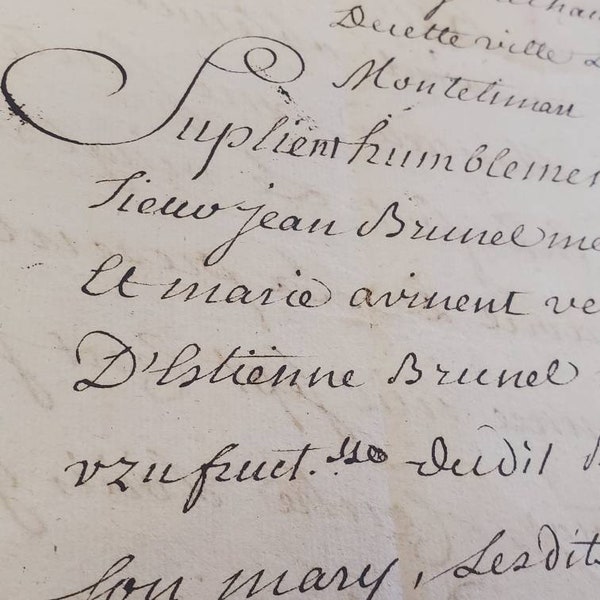 Decette ville
Montelimar
Suplient humblemen
Sieur jean Brunel me
Et marie avinent ve
D'Estienne Brunel
vzufruct.sse dudit
son mary, Lesdits